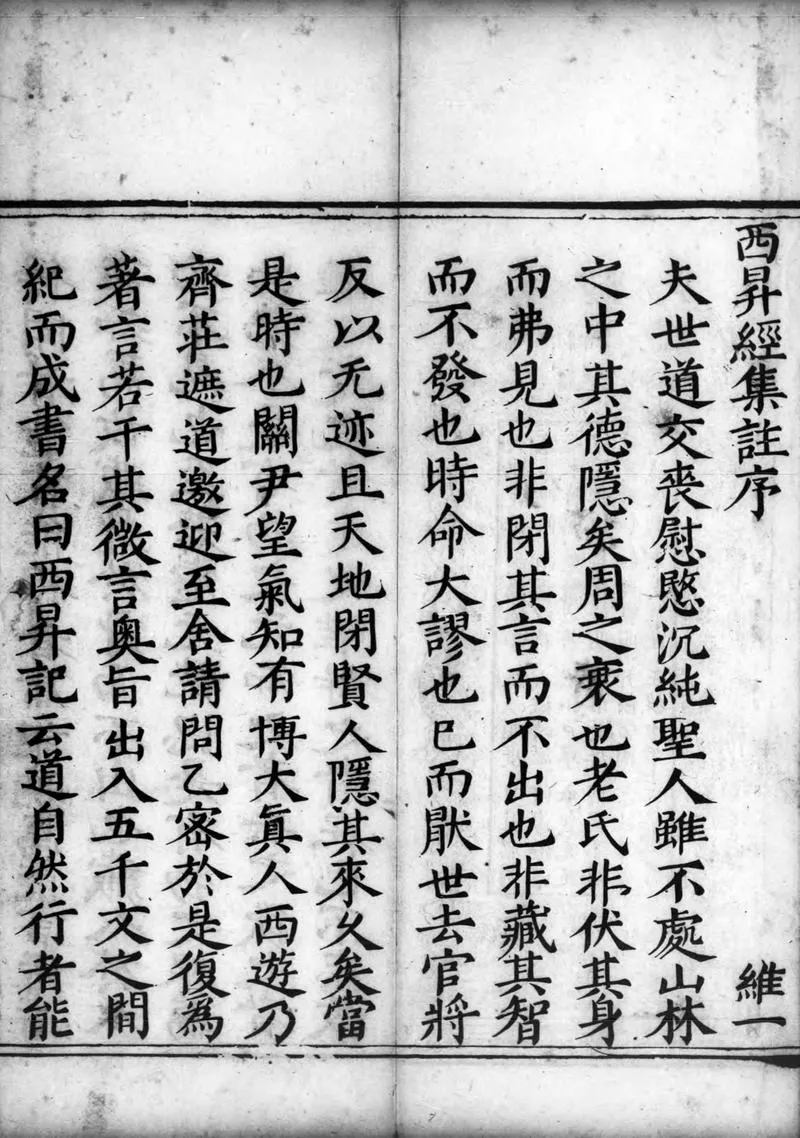 西昇經集註序 維一
夫世道交喪慰愍沉純聖人雖不處山林
之中其德隱矣周之衰也老氏非伏其身
而弗見也非閉其言而不出也非藏其智
而不發也時命大謬也已而猒世去官將
反以无迹且天地閉賢人隱其來久矣當
是時也關尹望氣知有博大真人西遊乃
齊莊遮道邀迎至舍請問乙密於是復為
著言若干其微言奥旨出入五千文之間
紀而成書名曰西昇記云道自然行者能